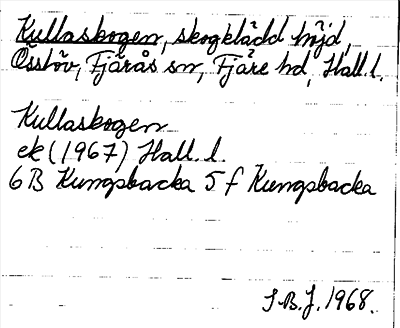 Kullaskogen, skogklädd höjd,
Össlöv, Fjärås sn, Fjäre hd, Hall. l.
Kullaskogen
ek (1967) Hall. l.
6B Kungsbacka 5 f Kungsbacka
S.B.J. 1968.